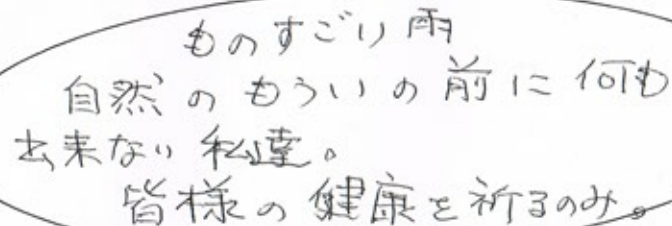 ものすごい雨
自然のもういの前に何も
出来ない私達。
皆様の健康を祈るのみ。